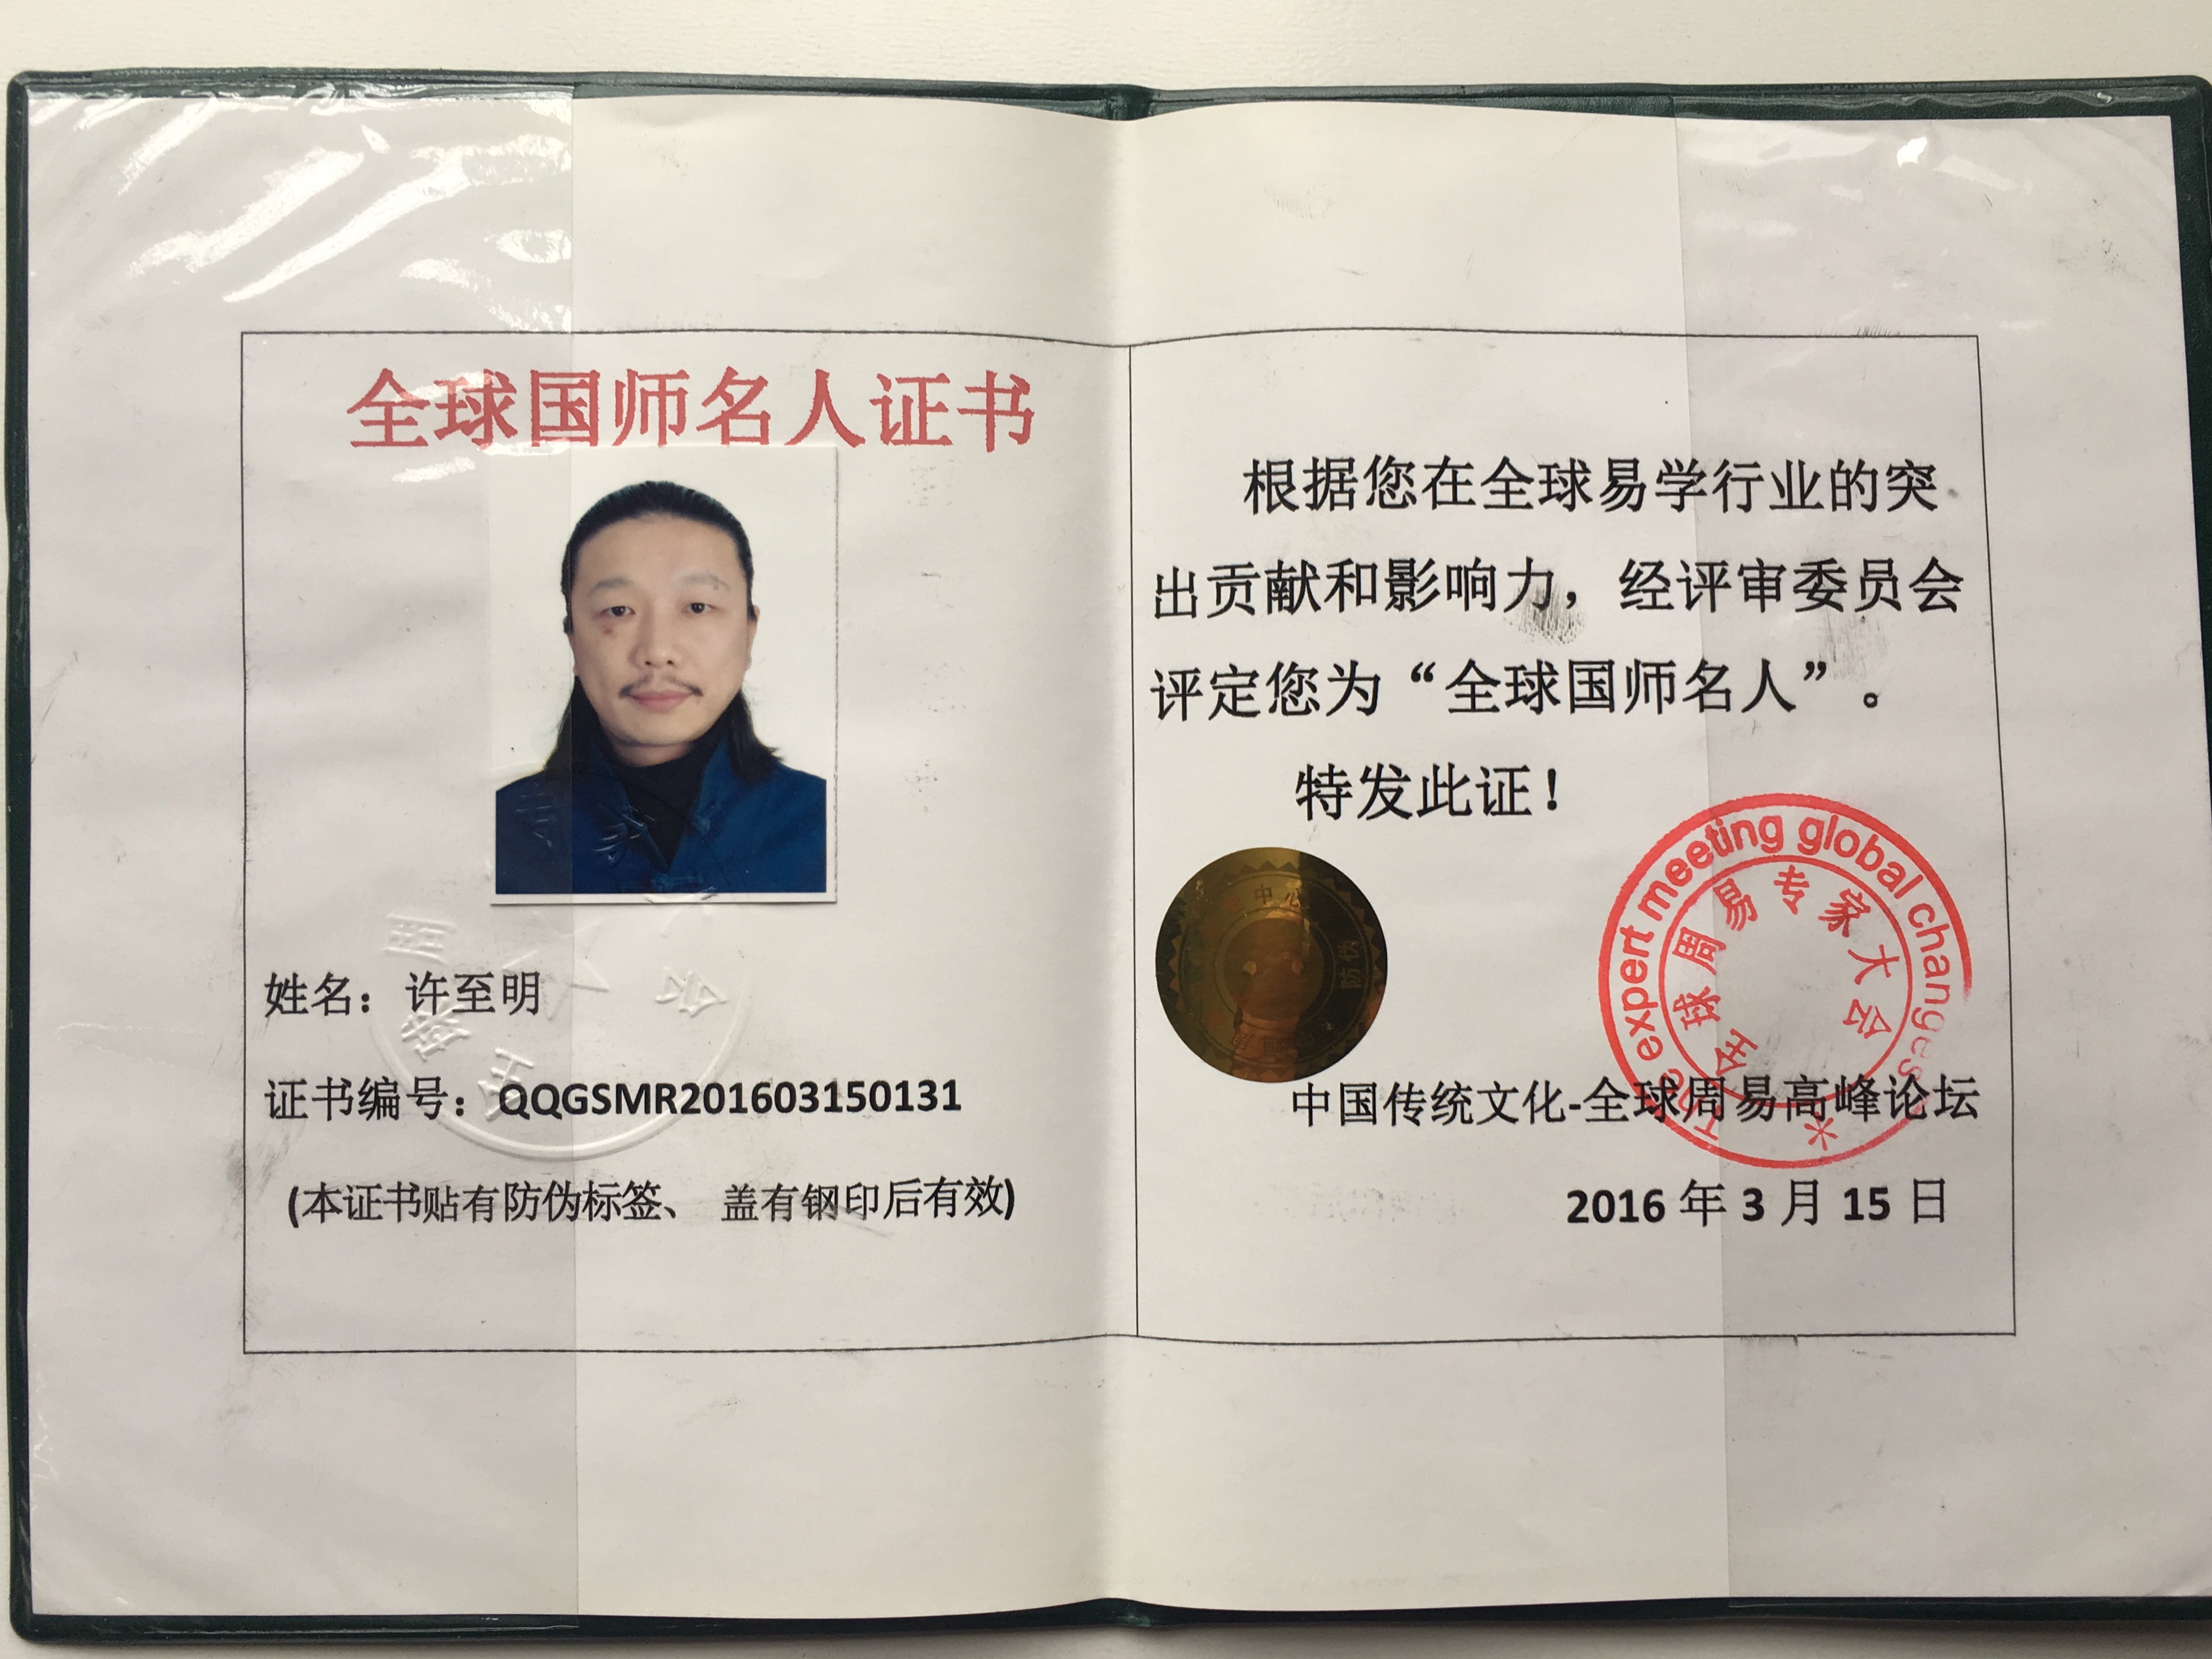 全球国师名人证书
姓名：许至明
证书编号：QQGSMR201603150131
(本证书贴有防伪标签、 盖有钢印后有效)
根据您在全球易学行业的突
出贡献和影响力，经评审委员会
评定您为“全球国师名人”。
特发此证！
中心
防伪
The expert meeting global changes
全球周易专家大会
中国传统文化-全球周易高峰论坛
2016 年 3 月 15 日